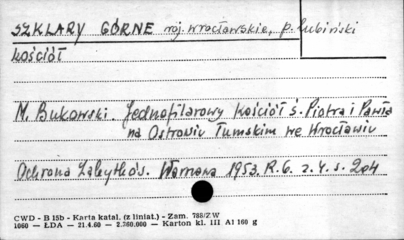 SZKLARY GÓRNE woj. wrocławskie, p. Lubiński
kościół
M. Bukowski. Jednofilarowy kościół ś. Piotra i Pawła
na Ostrowiu Tumskim we Wrocławiu
Ochrona Zabytków. Warszawa 1953. R.6. z.4. s. 204
CWD - B 15b - Karta katal. (z liniat.) - Zam. 788/ZW
1060 — ŁDA — 21.4.60 - 2.760.000 — Karton kl. III A1 160 g